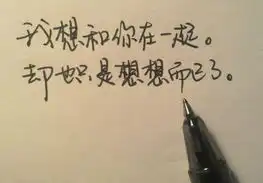 我想和你在一起。
却也只是想想而已了。